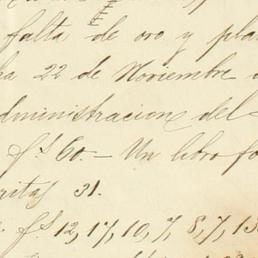 falta de oro y pla
ha 22 de Noviembre
dministracion del
f.s 60.— Un libro fo
ritas 31.
f.s 12, 17, 10, 7, 8, 7, 13